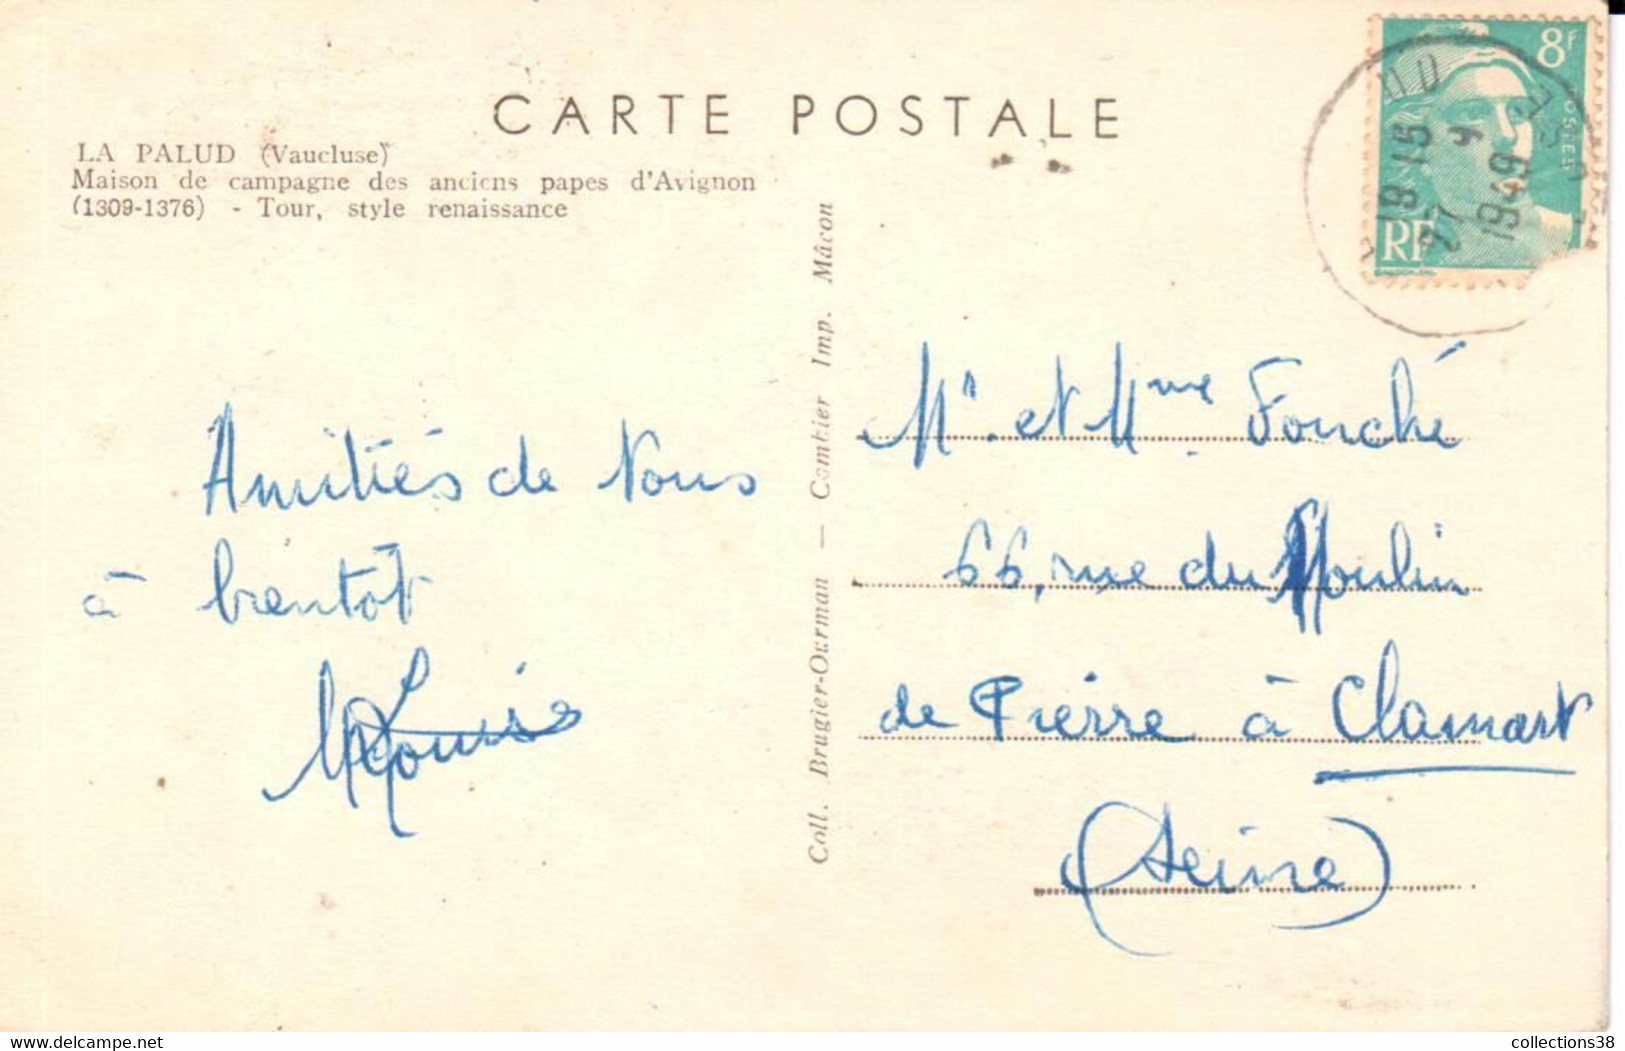 CARTE POSTALE
LA PALUD (Vaucluse)
Maison de campagne des anciens papes d'Avignon
(1309-1376) - Tour, style renaissance
Amitiés de Nous
à bientôt
Louis
Coll. Brugier-Ourman — Combier Imp. Mâcon
8F
POSTES
RF
19 15
27 9
1949
Mr et Mme Fouché
66, rue du Moulin
de Pierre à Clamart
(Seine)
www.delcampe.net
collections38